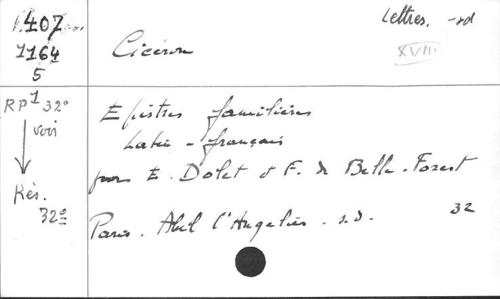 407
1164
5
Lettres. -sd
XVIII
Cicéron
RP1 32°
voir
Rés.
32°
Epistres familières
Latin - français
par E. Dolet & F. de Belle-Forest
Paris. Abel l'Angelier. s.d. 32